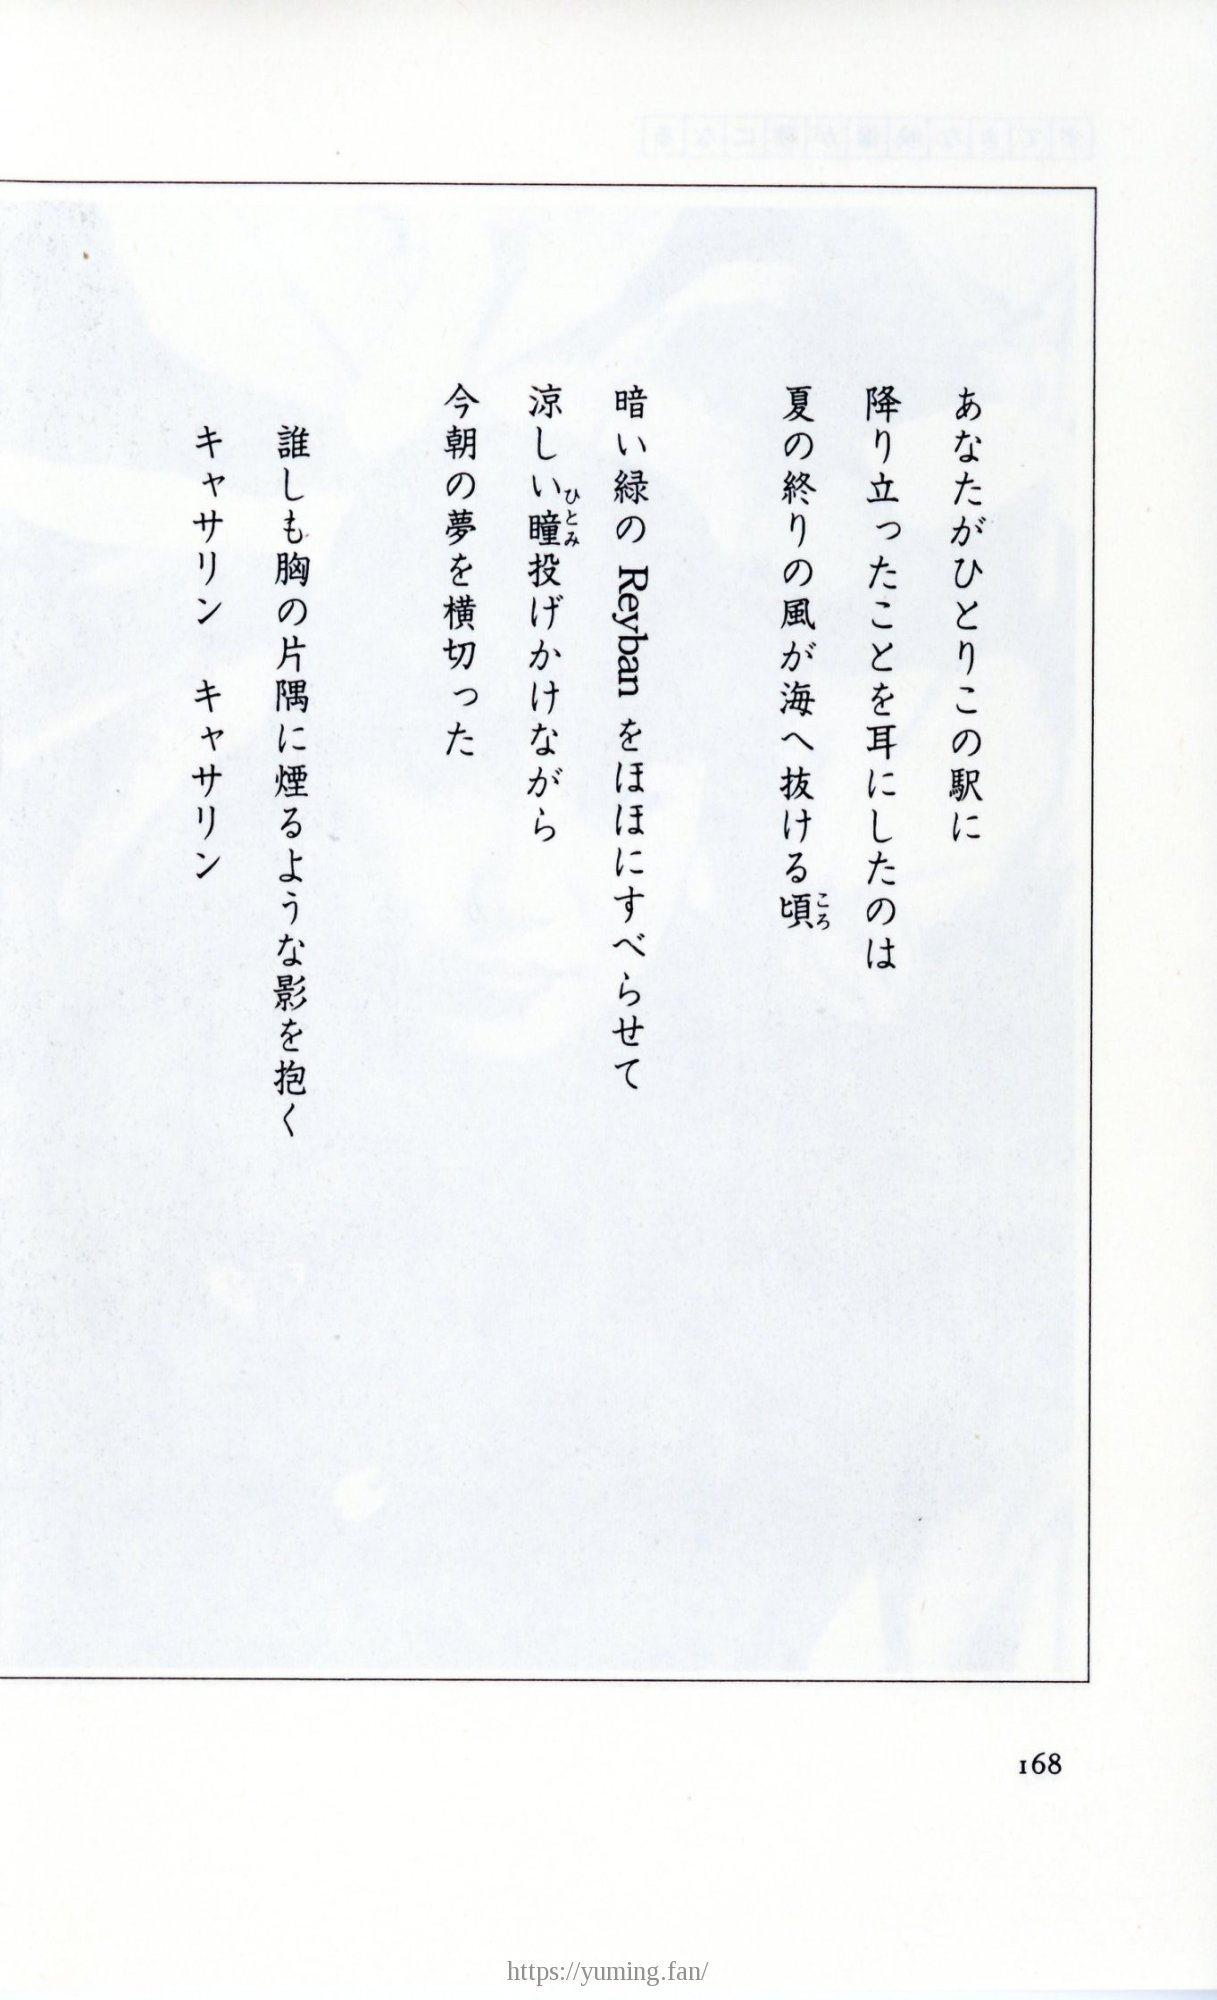 あなたがひとりこの駅に
降り立ったことを耳にしたのは
夏の終りの風が海へ抜ける頃
ころ
暗い緑の Reyban をほほにすべらせて
涼しい瞳投げかけながら
ひとみ
今朝の夢を横切った
誰しも胸の片隅に煙るような影を抱く
キャサリン　キャサリン
168
https://yuming.fan/